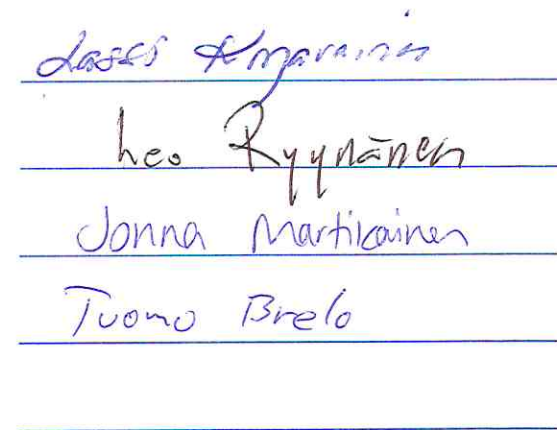 Lassi
Leo Ryynänen
Jonna Martikainen
Tuomo Brelo